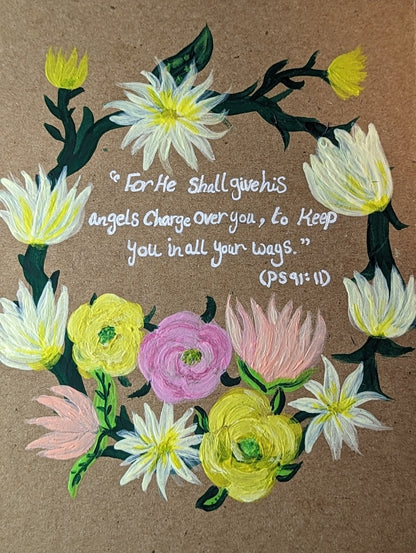 “ For He Shall give his
angels Charge Over you, to Keep
You in all your ways.”
(PS 91:11)